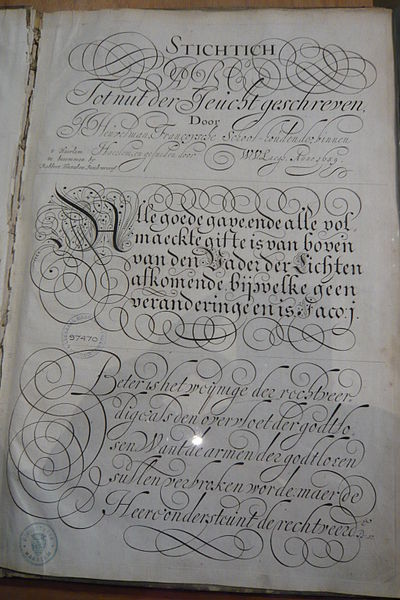 STICHTICH
ABC
Tot nut der Jeucht geschreven,
Door
Francoysche School-houder binnen
Haerlem, en gesneden door
Haerlem
alle goede gave, ende alle vol-
maeckte gifte is van boven
van den Vader der Lichten
afkomende, bij welke geen
veranderinge en is. Jaco: j.
97470
Beter is het weijnige der rechtveer-
dige, als den overvloet der godtlo-
sen. Want de armen der godtlosen
sullen verbroken worde, maer de
Heere ondersteunt de rechtveerd